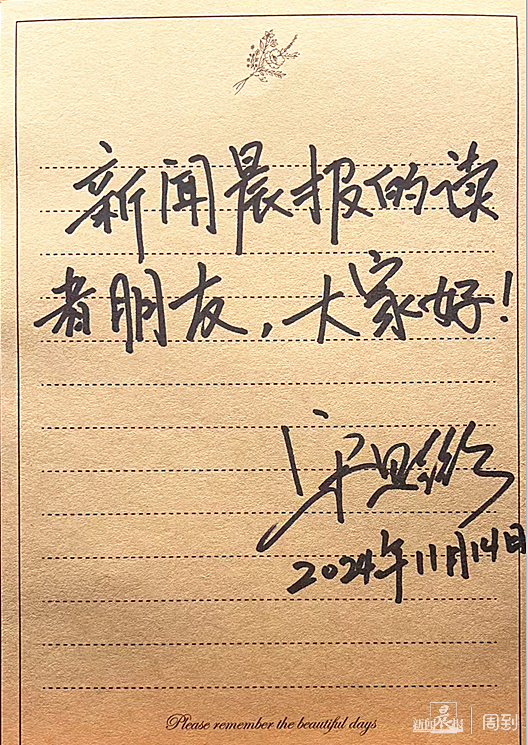 新闻晨报的读
者朋友，大家好！
2024年11月14日
Please remember the beautiful days
新闻晨报 周到